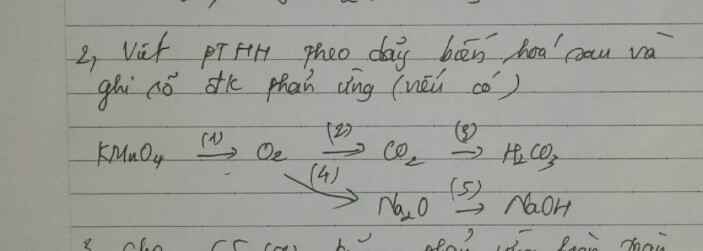 2, Viết PTHH theo dãy biến hoá sau và
ghi rõ đk phản ứng (nếu có)
KMnO4 (1)→ O2 (2)→ CO2 (3)→ H2CO3
(4)→ Na2O (5)→ NaOH